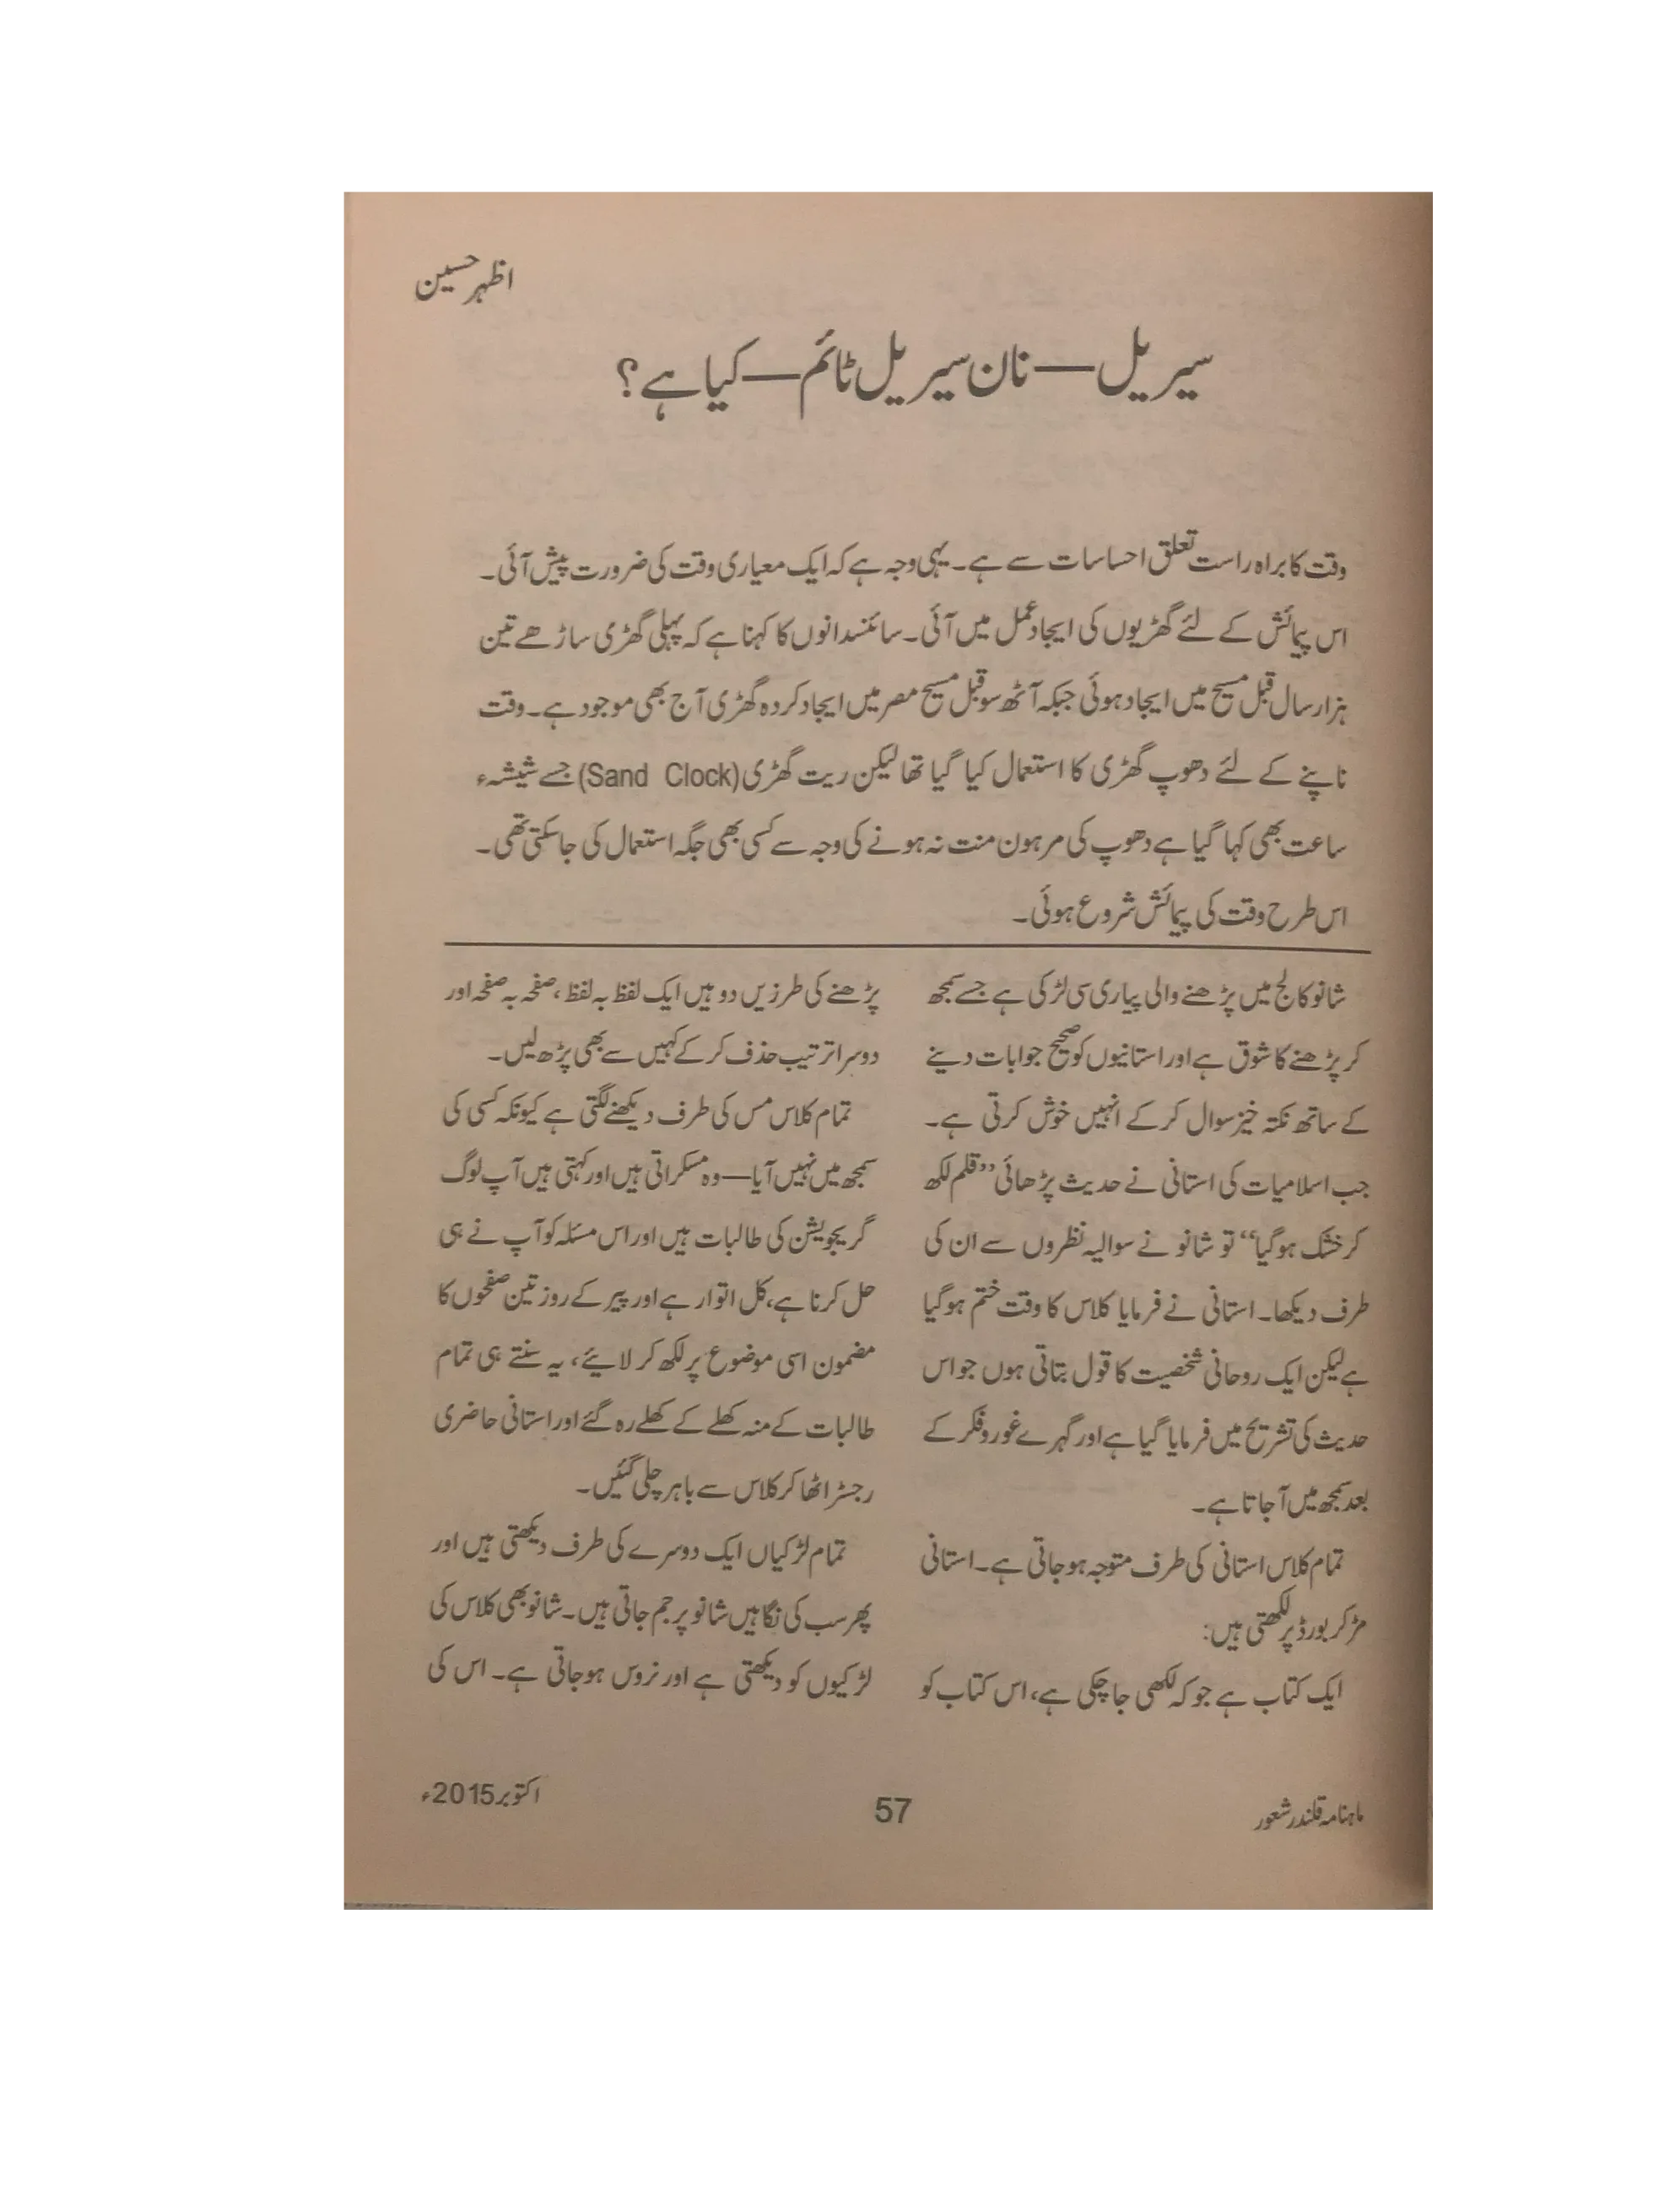 اظہر حسین
سیریل — نان سیریل ٹائم — کیا ہے؟
وقت کا براہ راست تعلق احساسات سے ہے۔ یہی وجہ ہے کہ ایک معیاری وقت کی ضرورت پیش آئی۔
اس پیمائش کے لئے گھڑیوں کی ایجاد عمل میں آئی۔ سائنسدانوں کا کہنا ہے کہ پہلی گھڑی ساڑھے تین
ہزار سال قبل مسیح میں ایجاد ہوئی جبکہ آٹھ سو قبل مسیح مصر میں ایجاد کردہ گھڑی آج بھی موجود ہے۔ وقت
ناپنے کے لئے دھوپ گھڑی کا استعمال کیا گیا تھا لیکن ریت گھڑی (Sand Clock) جسے شیشہء
ساعت بھی کہا گیا ہے دھوپ کی مرہون منت نہ ہونے کی وجہ سے کسی بھی جگہ استعمال کی جاسکتی تھی۔
اس طرح وقت کی پیمائش شروع ہوئی۔
شانو کالج میں پڑھنے والی پیاری سی لڑکی ہے جسے سمجھ
کر پڑھنے کا شوق ہے اور استانیوں کو صحیح جوابات دینے
کے ساتھ نکتہ خیز سوال کر کے انہیں خوش کرتی ہے۔
جب اسلامیات کی استانی نے حدیث پڑھائی ”قلم لکھ
کر خشک ہو گیا“ تو شانو نے سوالیہ نظروں سے ان کی
طرف دیکھا۔ استانی نے فرمایا کلاس کا وقت ختم ہو گیا
ہے لیکن ایک روحانی شخصیت کا قول بتاتی ہوں جو اس
حدیث کی تشریح میں فرمایا گیا ہے اور گہرے غور و فکر کے
بعد سمجھ میں آجاتا ہے۔
تمام کلاس استانی کی طرف متوجہ ہو جاتی ہے۔ استانی
مڑ کر بورڈ پر لکھتی ہیں:
ایک کتاب ہے جو کہ لکھی جا چکی ہے، اس کتاب کو
پڑھنے کی طرزیں دو ہیں ایک لفظ بہ لفظ، صفحہ بہ صفحہ اور
دوسرا ترتیب حذف کر کے کہیں سے بھی پڑھ لیں۔
تمام کلاس مس کی طرف دیکھنے لگتی ہے کیونکہ کسی کی
سمجھ میں نہیں آیا — وہ مسکراتی ہیں اور کہتی ہیں آپ لوگ
گریجویشن کی طالبات ہیں اور اس مسئلہ کو آپ نے ہی
حل کرنا ہے، کل اتوار ہے اور پیر کے روز تین صفحوں کا
مضمون اسی موضوع پر لکھ کر لایئے، یہ سنتے ہی تمام
طالبات کے منہ کھلے کے کھلے رہ گئے اور استانی حاضری
رجسٹر اٹھا کر کلاس سے باہر چلی گئیں۔
تمام لڑکیاں ایک دوسرے کی طرف دیکھتی ہیں اور
پھر سب کی نگاہیں شانو پر جم جاتی ہیں۔ شانو بھی کلاس کی
لڑکیوں کو دیکھتی ہے اور نروس ہو جاتی ہے۔ اس کی
ماہنامہ قلندر شعور
57
اکتوبر 2015ء